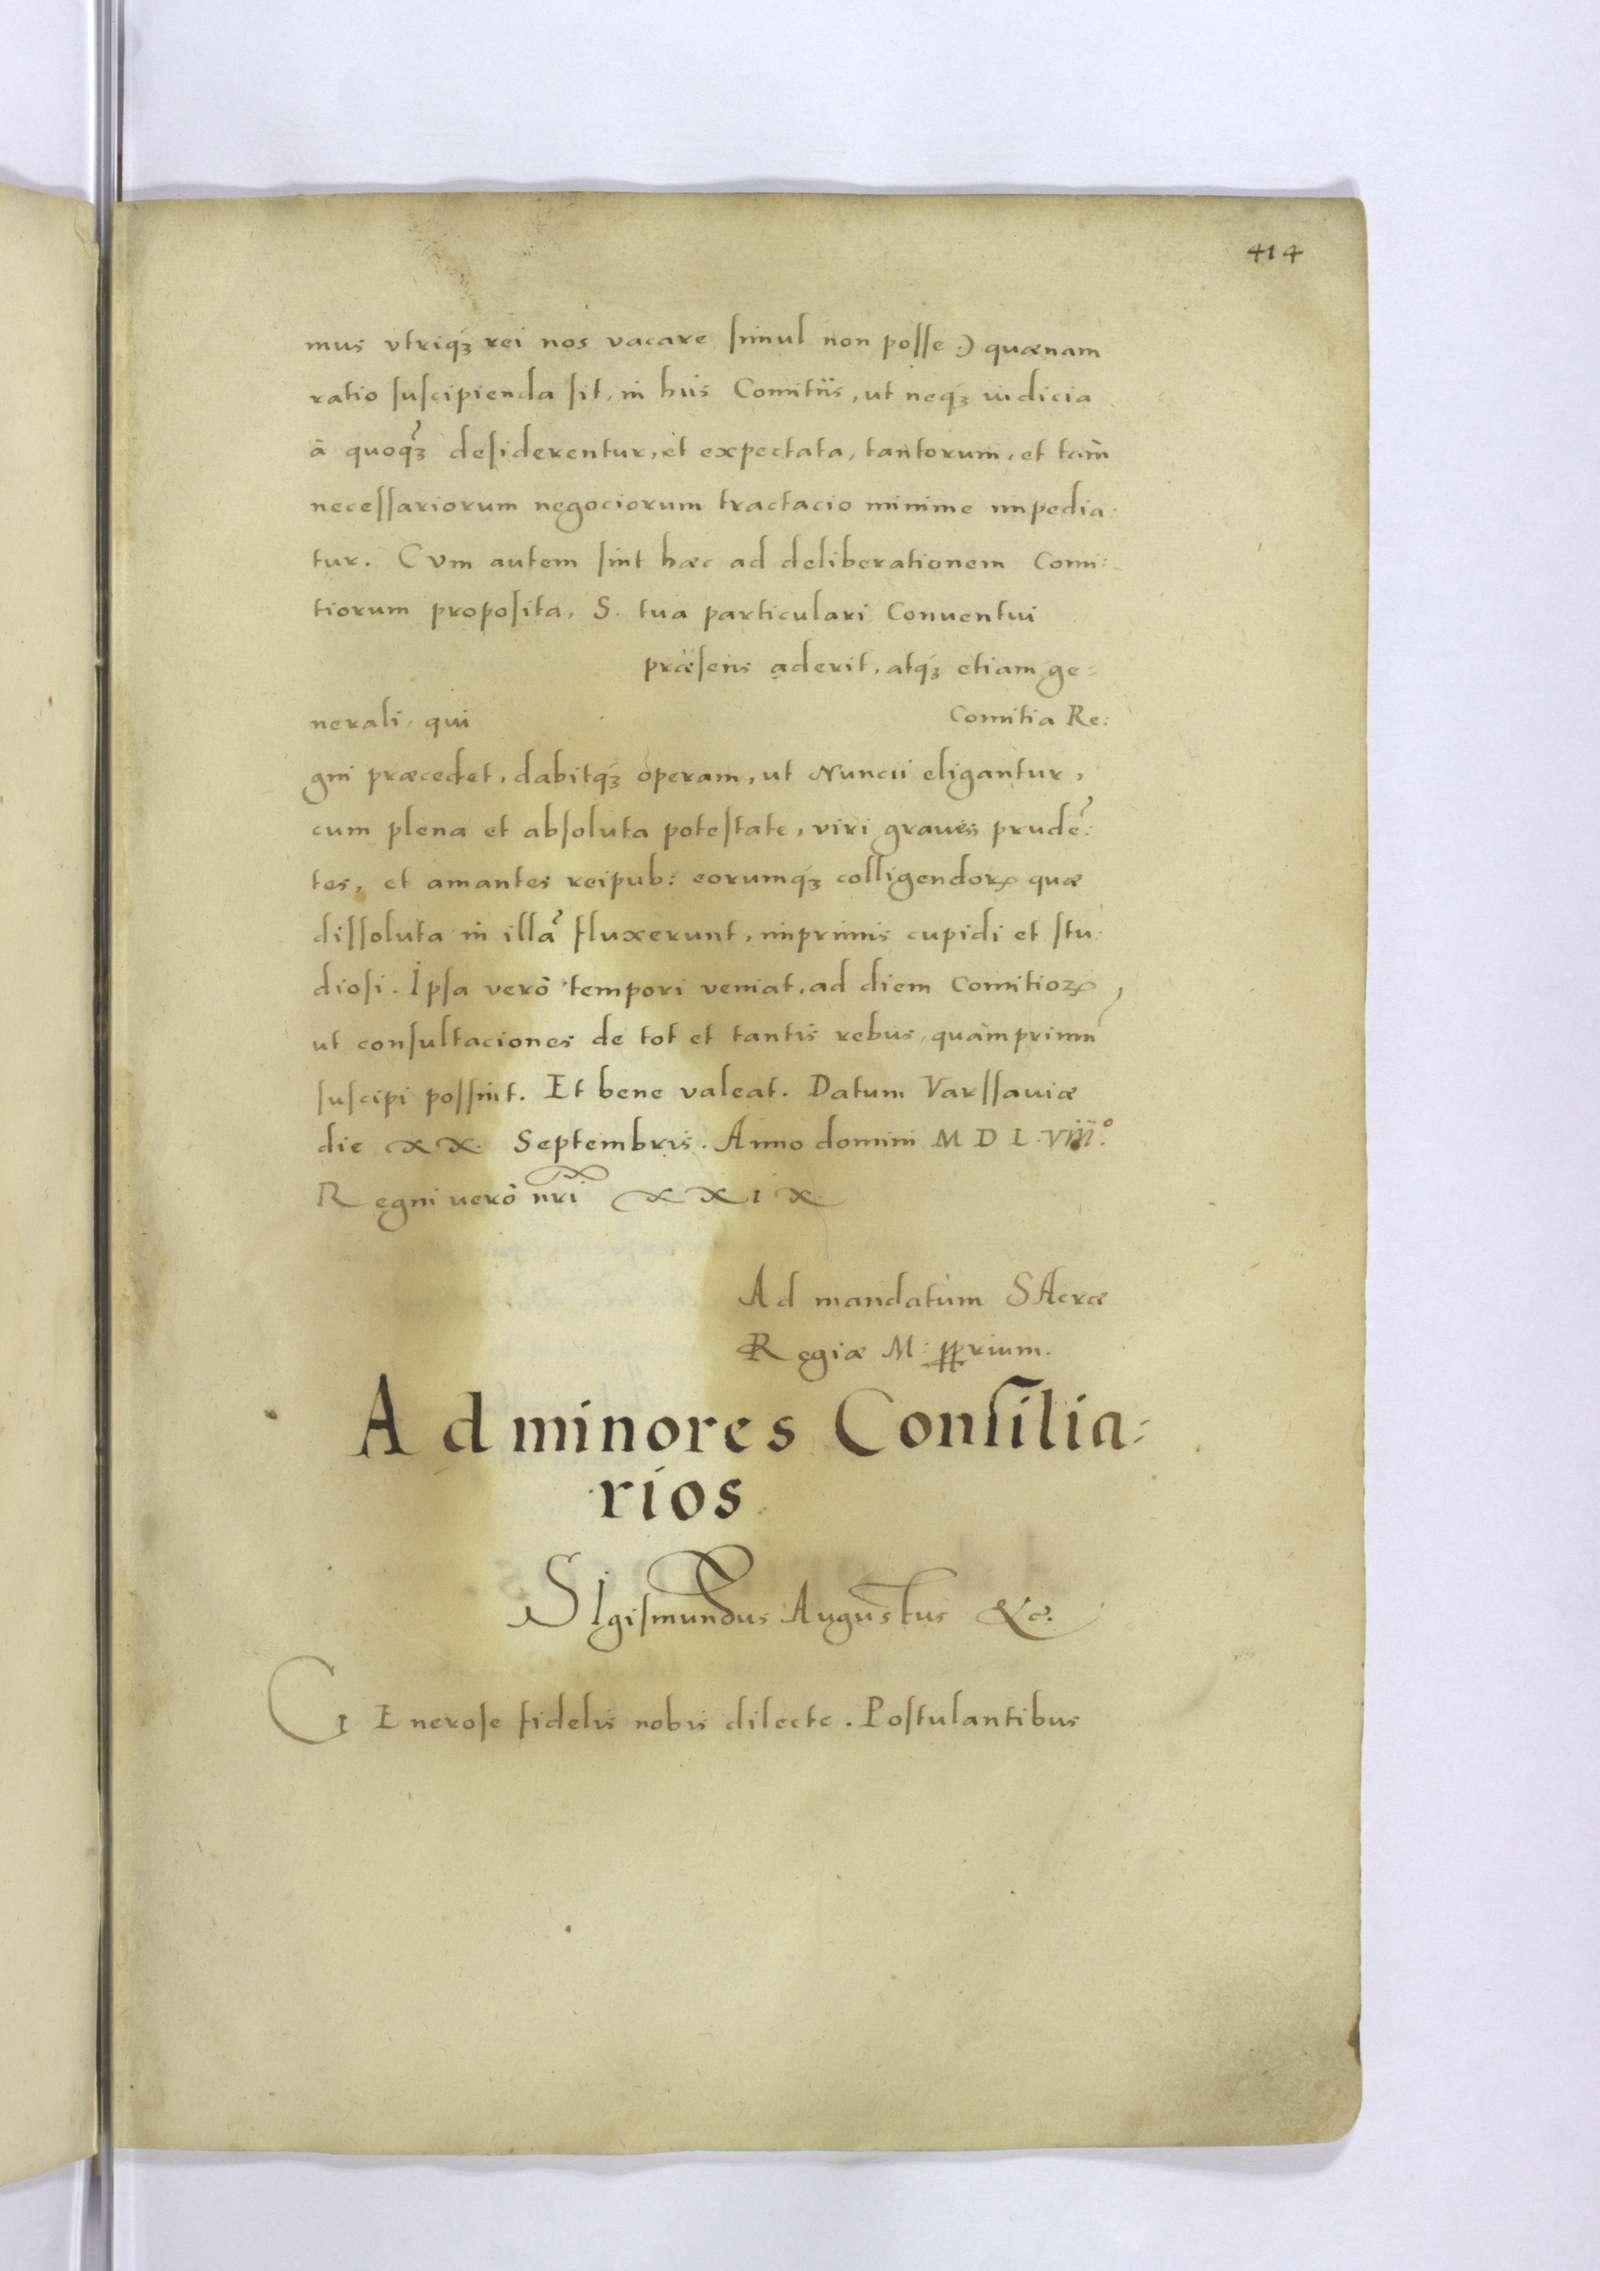 414
mus vtriqꝫ rei nos vacare simul non posse.) quænam
ratio suscipienda sit, in hiis Comitiis, ut neqꝫ iudicia
à quoqꝫ desiderentur, et expectata, tantorum, et tàm
necessariorum negociorum tractacio minime impedia:
tur. CVm autem sint hæc ad deliberationem Comi:
tiorum proposita, S. tua particulari Conuentui
præsens aderit, atqꝫ etiam ge:
nerali, qui Comitia Re:
gni præcedet, dabitqꝫ operam, ut Nuncii eligantur,
cum plena et absoluta potestate, viri graues prudẽ:
tes, et amantes reipub: eorumqꝫ colligendorꝝ quæ
dissoluta in illã fluxerunt, imprimis cupidi et stu:
diosi. Ipsa verò tempori veniat, ad diem Comitioꝝ,
ut consultaciones de tot et tantis rebus, quàm primũ
suscipi possint. Et bene valeat. Datum Varssauiæ
die XX. Septembris. Anno domini M D L VIII.º
Regni uerò nr̃i XXIX
Ad mandatum SAcræ
Regiæ M: ꝓprium.
Ad minores Consilia:
rios
SIgismundus Augustus &c.
GEnerose fidelis nobis dilecte. Postulantibus